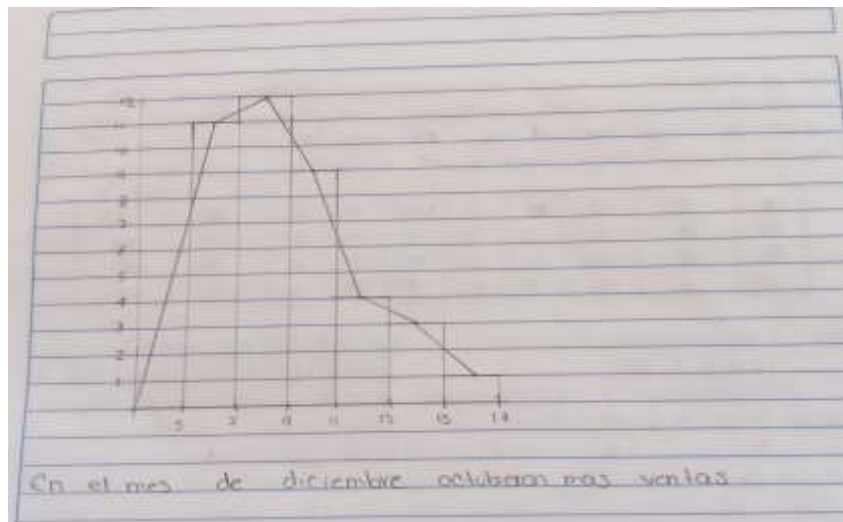 12
11
10
9
8
7
6
5
4
3
2
1
5 7 9 11 13 15 17
En el mes de diciembre octubieron mas ventas